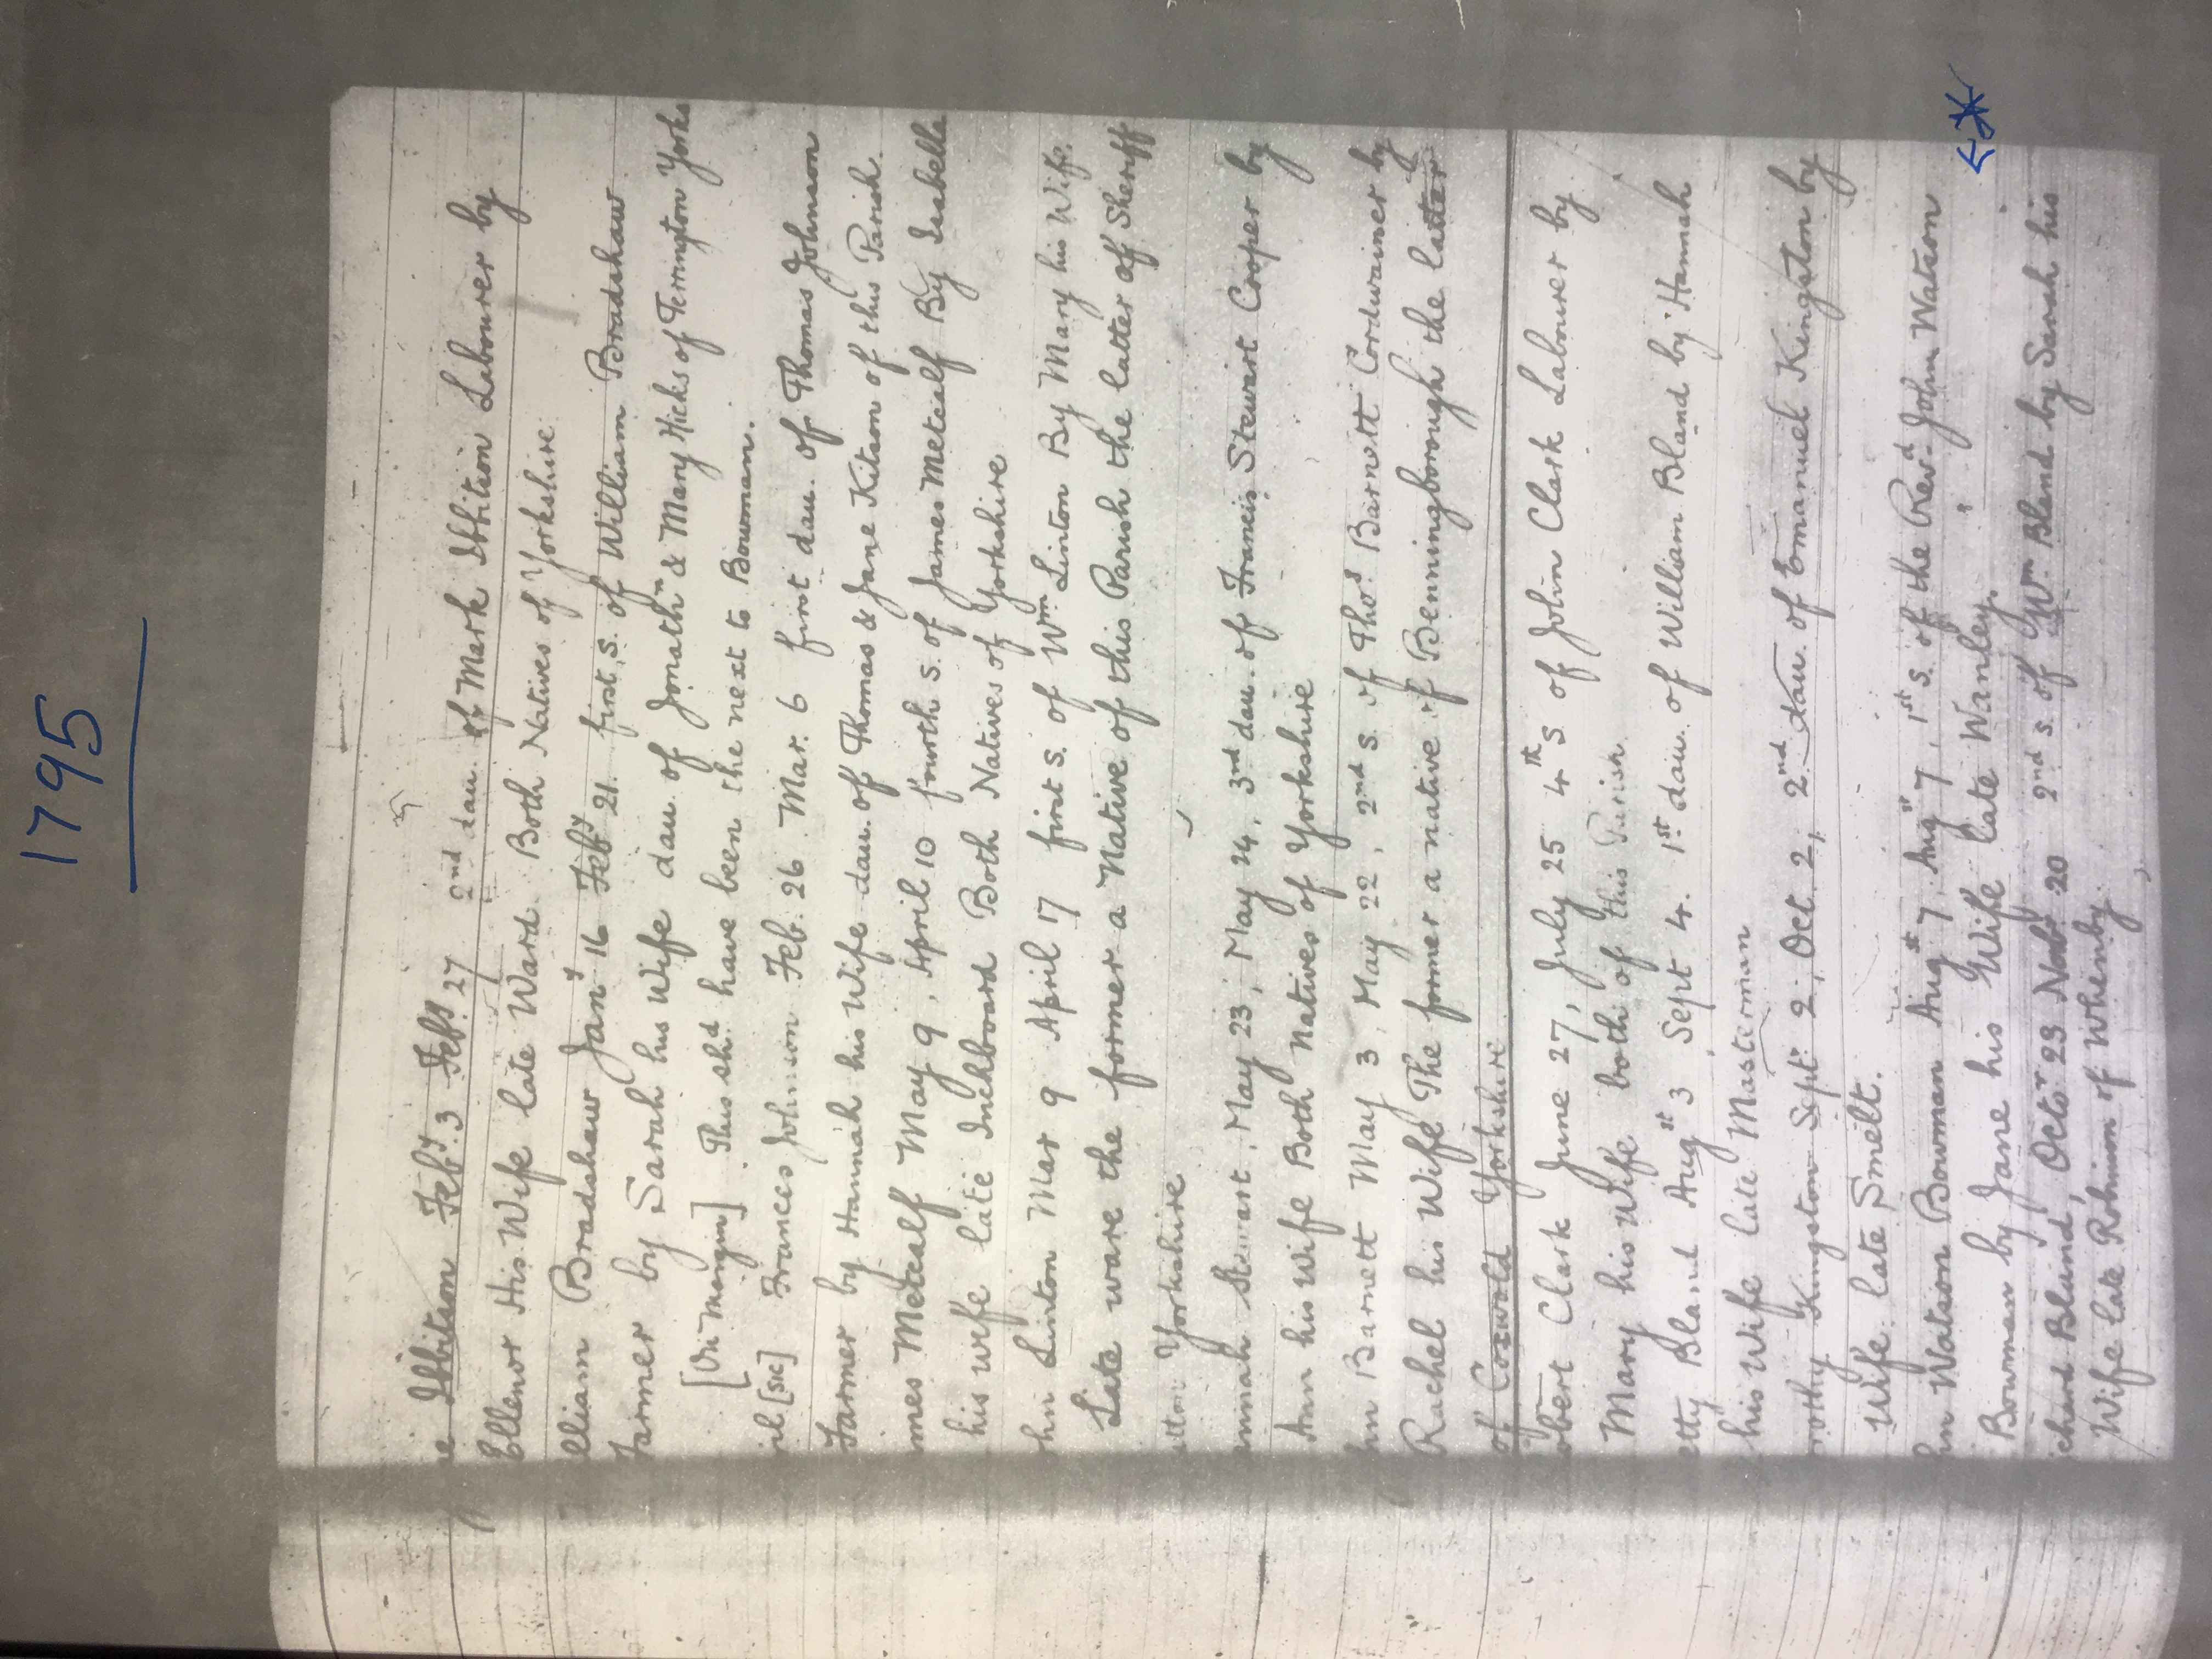 1795
Ibbitson Feby. 3 Feby. 27 2nd dau. of Mark Ibbitson Labourer by
Ellenor His Wife late Ward. Both Natives of Yorkshire.
lliam Bradshaw Jany 16 Feby 21. first s. of William Bradshaw
Farmer by Sarah his Wife dau of Jonathn & Mary Hicks of Terrington Yorks
[On Margin] This shd have been the next to Bowman.
[sic] Frances Johnson Feb. 26 Mar. 6 first dau. of Thomas Johnson
Farmer by Hannah his Wife dau. of Thomas & Jane Kitson of this Parish.
mes Metcalf May 9, April 10 fourth s. of James Metcalf By Isabella
his wife late Inchboard Both Natives of Yorkshire
hn Linton Mar 9 April 17 first s. of Wm Linton By Mary his Wife.
Late ware the former a Native of this Parish the latter of Sheriff
utton Yorkshire
nnah Stewart, May 23, May 24, 3rd dau. of Francis Stewart Cooper by
Ann his Wife Both Natives of Yorkshire
hn Barnett May 3, May 22, 2nd s. of Thos Barnett Cordwainer by
Rachel his Wife The former a native of Benningborough the latter
of Coxwold Yorkshire
obert Clark June 27, July 25 4th s of John Clark Labourer by
Mary his Wife both of this Parish
etty Bland Augst 3, Sept 4. 1st dau. of William Bland by Hannah
his Wife late Masterman
rothy Kingston Sept. 2, Oct. 2, 2nd dau. of Emanuel Kingston by
Wife late Smelt.
hn Watson Bowman Augst 7, Augst 7, 1st s. of the Revd. John Watson
Bowman by Jane his Wife late Wanley.
chard Blaind, Octor 23 Novr. 20 2nd s. of Wm Bland by Sarah his
Wife late Robinson of Whenby.